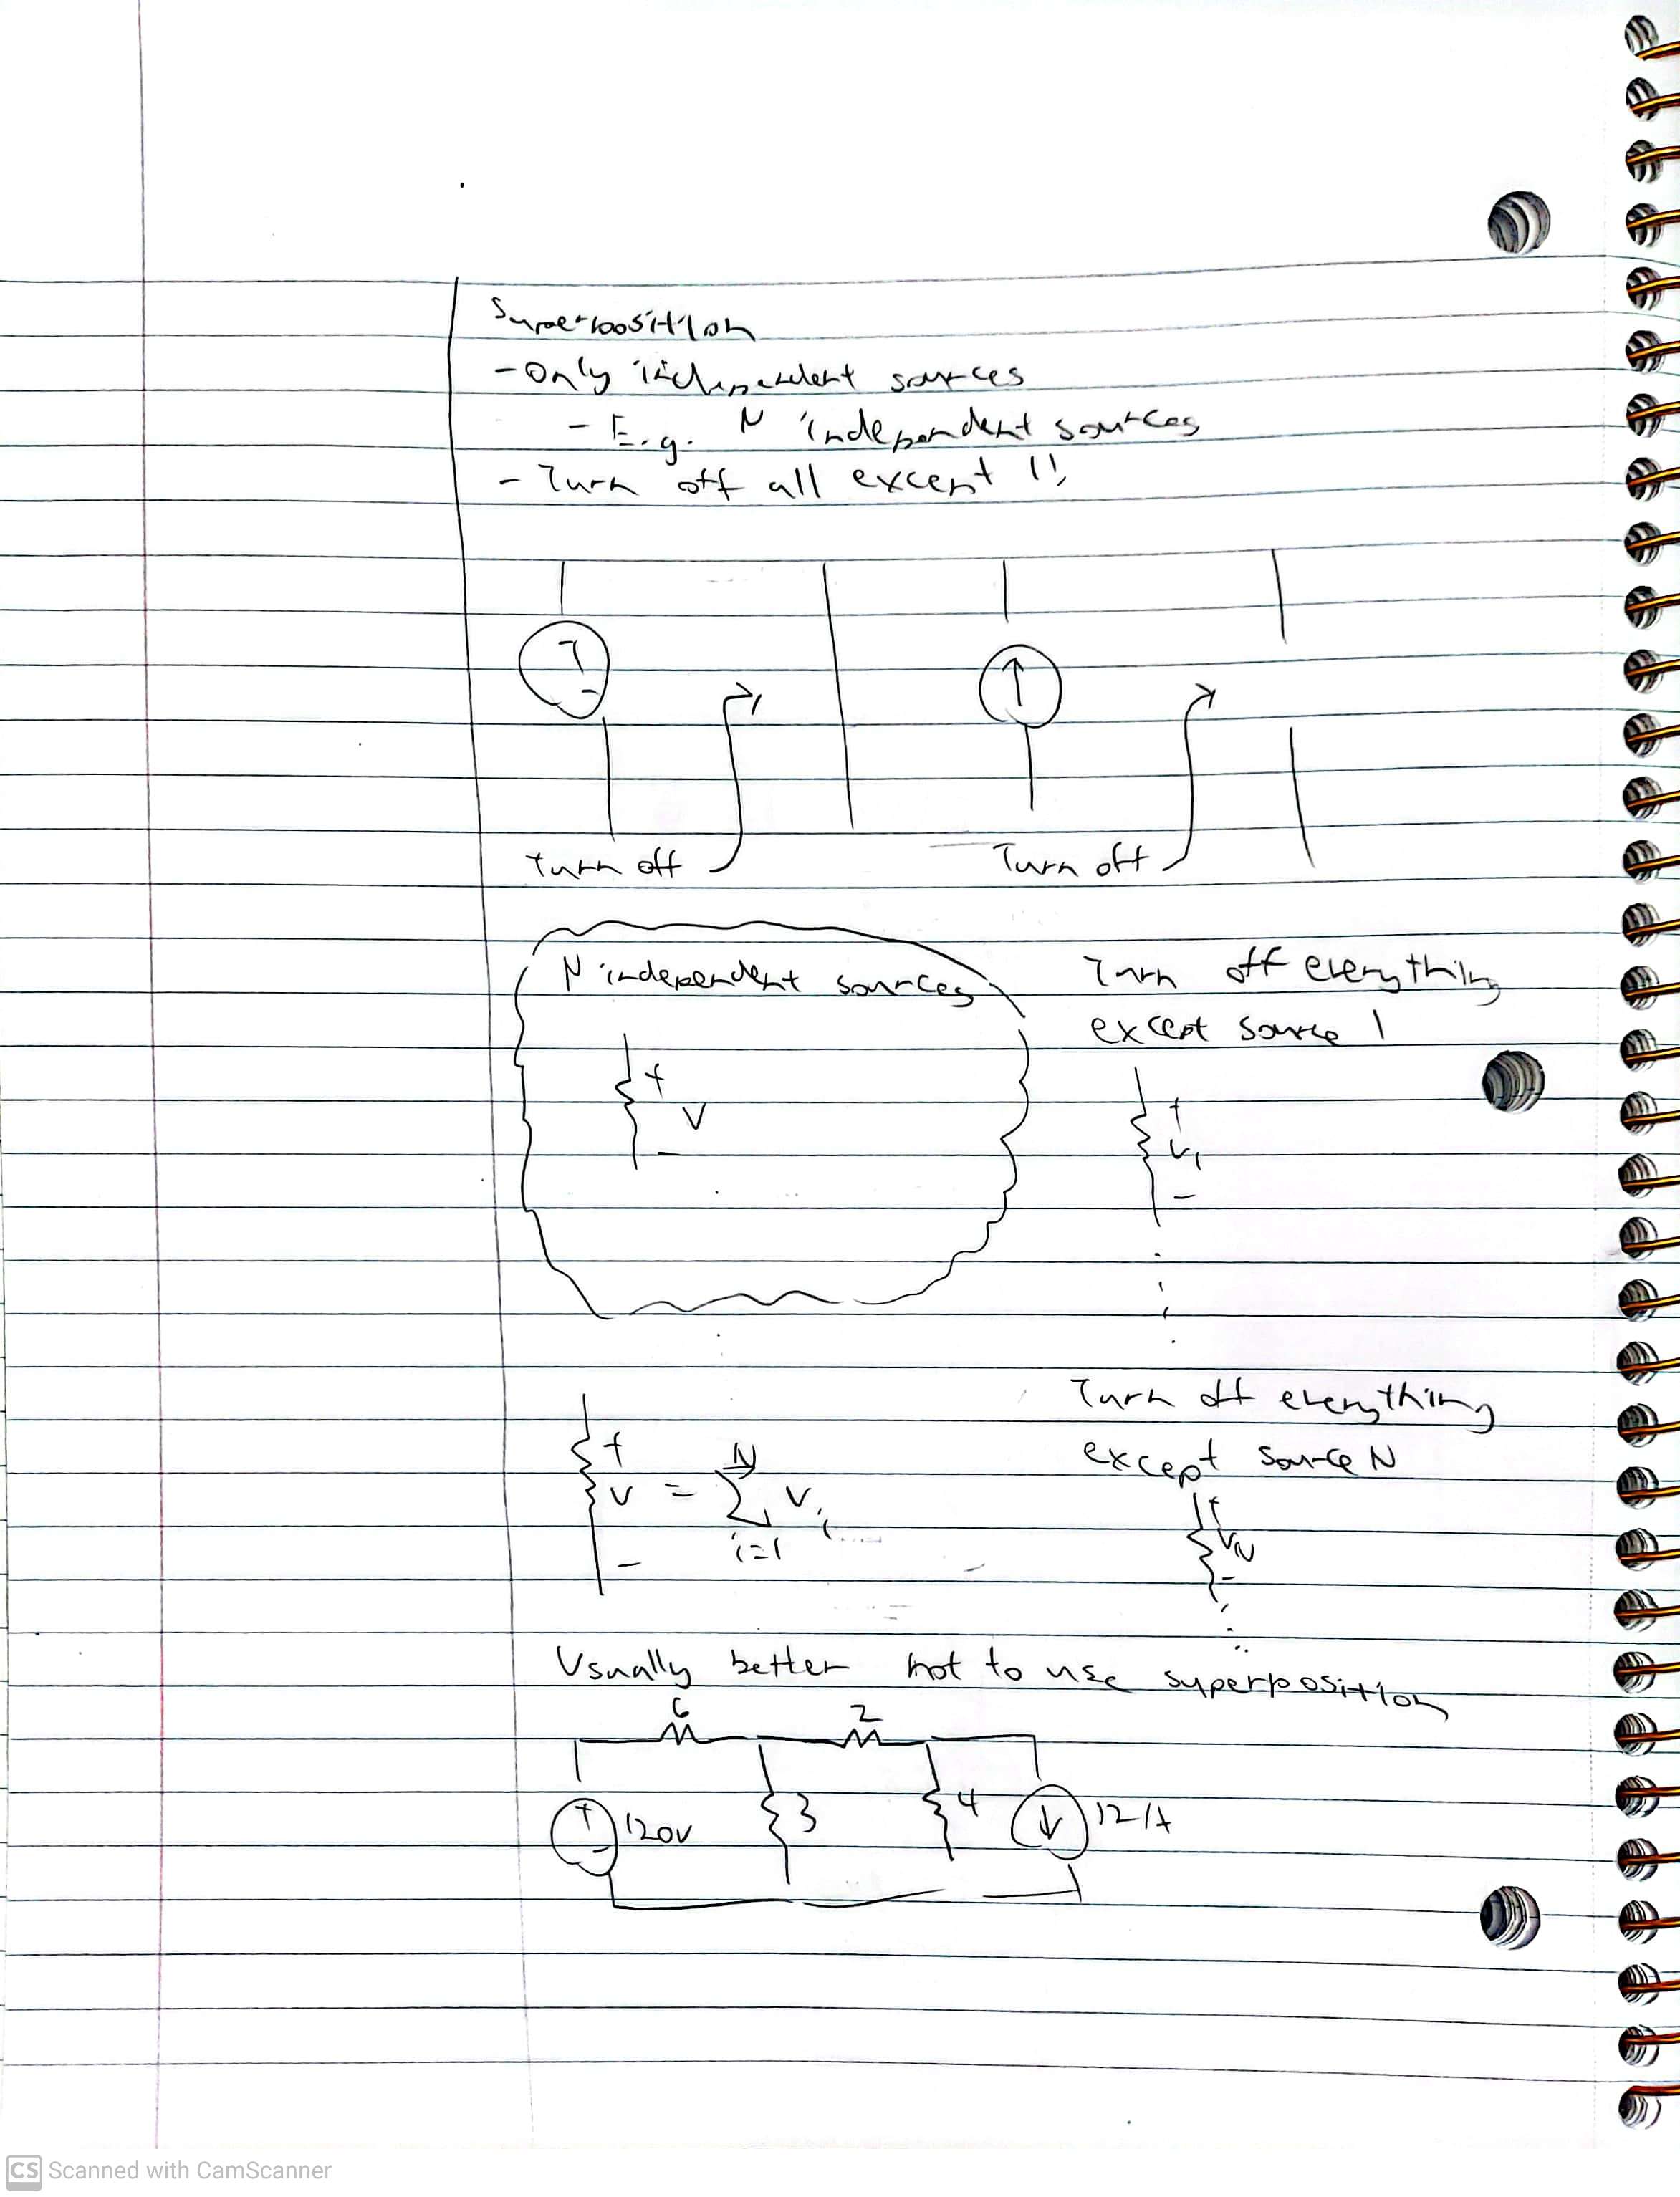 Superposition
- Only independent sources
- E.g. N independent sources
- Turn off all except 1!
+
-
↑
Turn off
Turn off
N independent sources
+
V
-
Turn off everything
except source 1
+
V₁
-
Turn off everything
except source N
+
V = N Σ i=1 Vᵢ
-
+
VN
-
Usually better not to use superposition
6
2
+
-
120V
3
4
↓
12A
CS Scanned with CamScanner